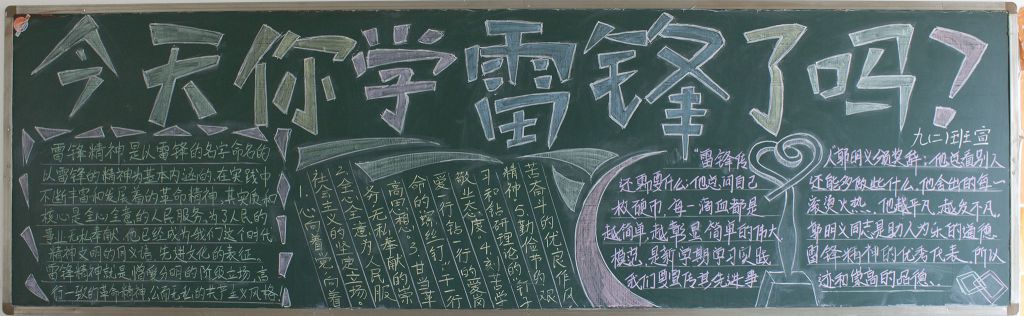 今天你学雷锋了吗?
九二班宣
雷锋精神是以雷锋的名字命名的
以雷锋的精神为基本内涵的在实践中
不断丰富和发展着的革命精神,其实质和
核心是全心全意的人民服务,为了人民的
事业无私奉献。他已经成为我们这个时代
精神文明的同义语、先进文化的表征。
雷锋精神就是憎爱分明的阶级立场、言
行一致的革命精神、公而无私的共产主义风格
1、心向着党、向着
社会主义的坚定立场
2、全心全意为人民服
务、无私奉献的崇
高思想。3、甘当革
命的螺丝钉,干一行
爱一行钻一行的爱岗
敬业态度。4、刻苦学
习和钻研理论的"钉子
精神"5、勤俭节约、艰
苦奋斗的优良作风
"雷锋传人"郭明义颁奖辞:他总看别人
还需要什么;他总问自己还能多做些什么。他舍出的每一
枚硬币,每一滴血都是滚烫火热。他越平凡,越发不凡,
越简单,越彰显简单的伟大。郭明义同志是助人为乐的道德
模范,是新时期学习实践雷锋精神的优秀代表。所以
我们要宣传其先进事迹和崇高的品德。